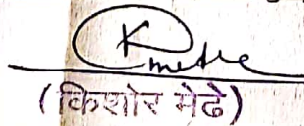 Kmedhe
(किशोर मेढे)